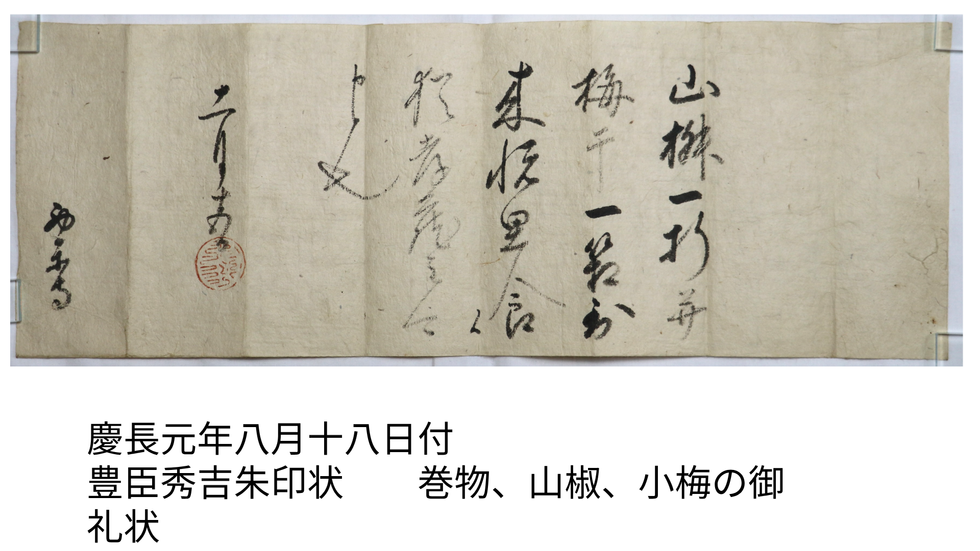 山椒一折并
梅干一箱到
来悦思食候
猶孝蔵主可
申候也
十二月十五日
慶長元年八月十八日付
豊臣秀吉朱印状　　巻物、山椒、小梅の御
礼状